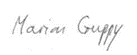 Marion Guppy